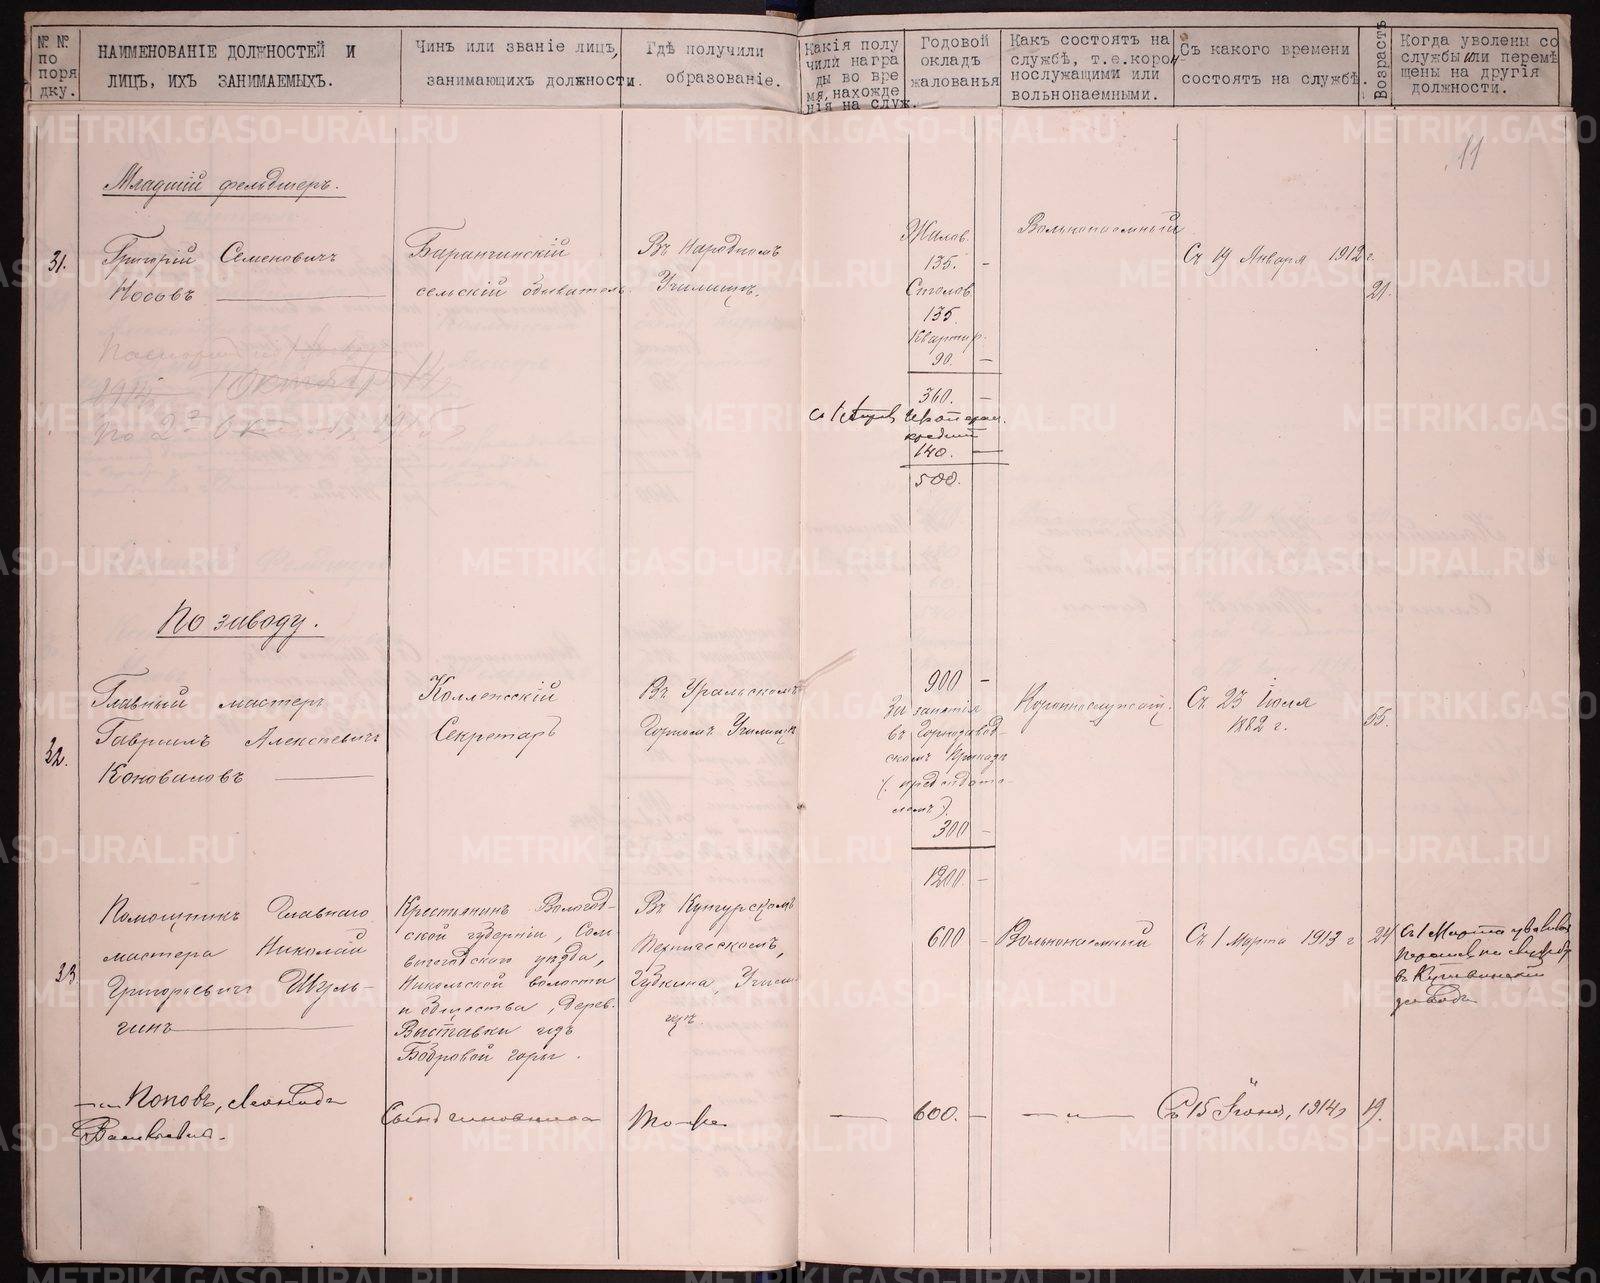 № №
по
поря
дку.
НАИМЕНОВАНІЕ ДОЛЖНОСТЕЙ И
ЛИЦЪ, ИХЪ ЗАНИМАЕМЫХЪ.
Чинъ или званіе лицъ,
занимающихъ должности.
Гдѣ получили
образованіе.
Какія полу
чили награ
ды во вре
мя, нахожде
нія на служ.
Годовой
окладъ
жалованья
Какъ состоятъ на
службѣ, т.е. корон
нослужащими или
вольнонаемными.
Съ какого времени
состоятъ на службѣ.
Возрастъ
Когда уволены со
службы или перемѣ
щены на другія
должности.
11
Младшій фельдшеръ.
31.
Григорій Семеновичъ
Носовъ
Баранчинскій
сельскій обыватель
Въ Народномъ
Училищѣ.
Жалов.
135. —
Столов.
135.
Квартир.
90. —
360. —
140. —
500.
Вольнонаемный
Съ 19 Января 1912 г.
21.
По заводу.
32.
Главный мастеръ
Гавріилъ Алексѣевичъ
Коноваловъ
Коллежскій
Секретарь
Въ Уральскомъ
Горномъ Училищѣ
900 —
За занятія
въ Горнозавод-
скомъ
(предсѣдате-
лемъ).
300 —
1200 —
Короннослужащ.
Съ 23 Іюля
1882 г.
55.
33
Помощникъ Главнаго
мастера Николай
Григорьевичъ Шуль-
гинъ
Крестьянинъ Вологод-
ской губерніи, Соль-
вычегодскаго уѣзда,
Никольской волости
и общества, дерев.
Выставки изъ
Бобровой горы.
Въ Кунгурскомъ
Техническомъ,
Губкина, Учили-
щѣ.
600 —
Вольнонаемный
Съ 1 Марта 1913 г
24
Съ 1 Марта уволенъ
въ Кушвинскій
заводъ
—„— Поповъ, Леонидъ
Васильевичъ.
Сынъ чиновника
То-же
—
600. —
—„—
Съ 15 Іюня, 1914 г
19.
METRIKI.GASO-URAL.RU